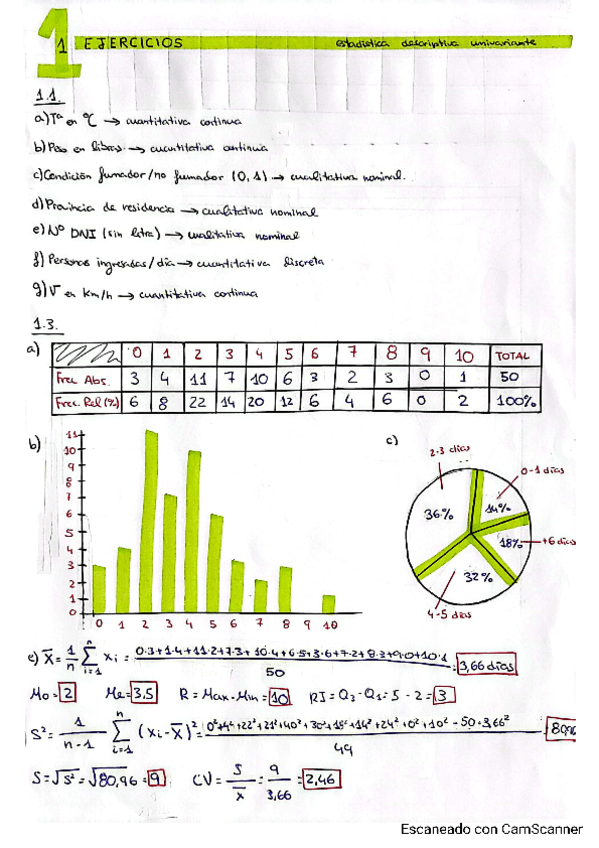 1 EJERCICIOS estadística descriptiva univariante
1.1.
a) Tª en ºC → cuantitativa continua
b) Peso en libras → cuantitativa continua
c) Condición fumador/no fumador (0, 1) → cualitativa nominal.
d) Provincia de residencia → cualitativa nominal
e) Nº DNI (sin letra) → cualitativa nominal
f) Personas ingresadas/día → cuantitativa discreta
g) V en km/h → cuantitativa continua
1.3.
a) 0 1 2 3 4 5 6 7 8 9 10 TOTAL
Frec. Abs. 3 4 11 7 10 6 3 2 3 0 1 50
Frec. Rel (%) 6 8 22 14 20 12 6 4 6 0 2 100%
b)
11
10
9
8
7
6
5
4
3
2
1
0
0 1 2 3 4 5 6 7 8 9 10
c)
2-3 días
0-1 días
36%
14%
18% +6 días
32%
4-5 días
e) X̄ = 1/n Σ i=1 n xi = 0·3+1·4+11·2+7·3+10·4+6·5+3·6+7·2+8·3+9·0+10·1 / 50 = 3,66 días
Mo = 2 Me = 3,5 R = Max - Min = 10 RI = Q3 - Q1 = 5 - 2 = 3
S² = 1/n-1 Σ i=1 n (xi - X̄)² = 0²+4²+22²+21²+40²+30²+18²+14²+24²+0²+10² - 50·3,66² / 49
S = √S² = √80,96 = 9 CV = S/x̄ = 9/3,66 = 2,46
Escaneado con CamScanner